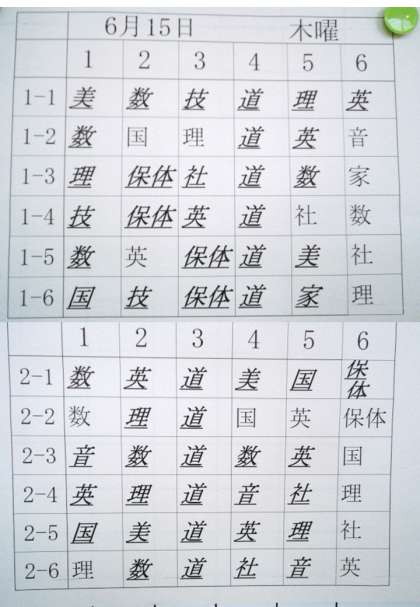 6月15日 木曜
1 2 3 4 5 6
1-1 美 数 技 道 理 英
1-2 数 国 理 道 英 音
1-3 理 保体 社 道 数 家
1-4 技 保体 英 道 社 数
1-5 数 英 保体 道 美 社
1-6 国 技 保体 道 家 理
1 2 3 4 5 6
2-1 数 英 道 美 国 保体
2-2 数 理 道 国 英 保体
2-3 音 数 道 数 英 国
2-4 英 理 道 音 社 理
2-5 国 美 道 英 理 社
2-6 理 数 道 社 音 英